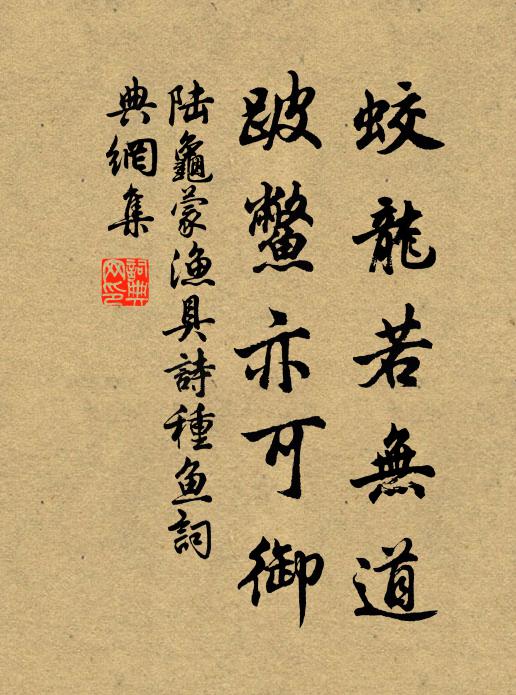 蛟龍若無道
跛鱉亦可御
陆龜蒙漁具詩種鱼詞
典網集
詞典
网印